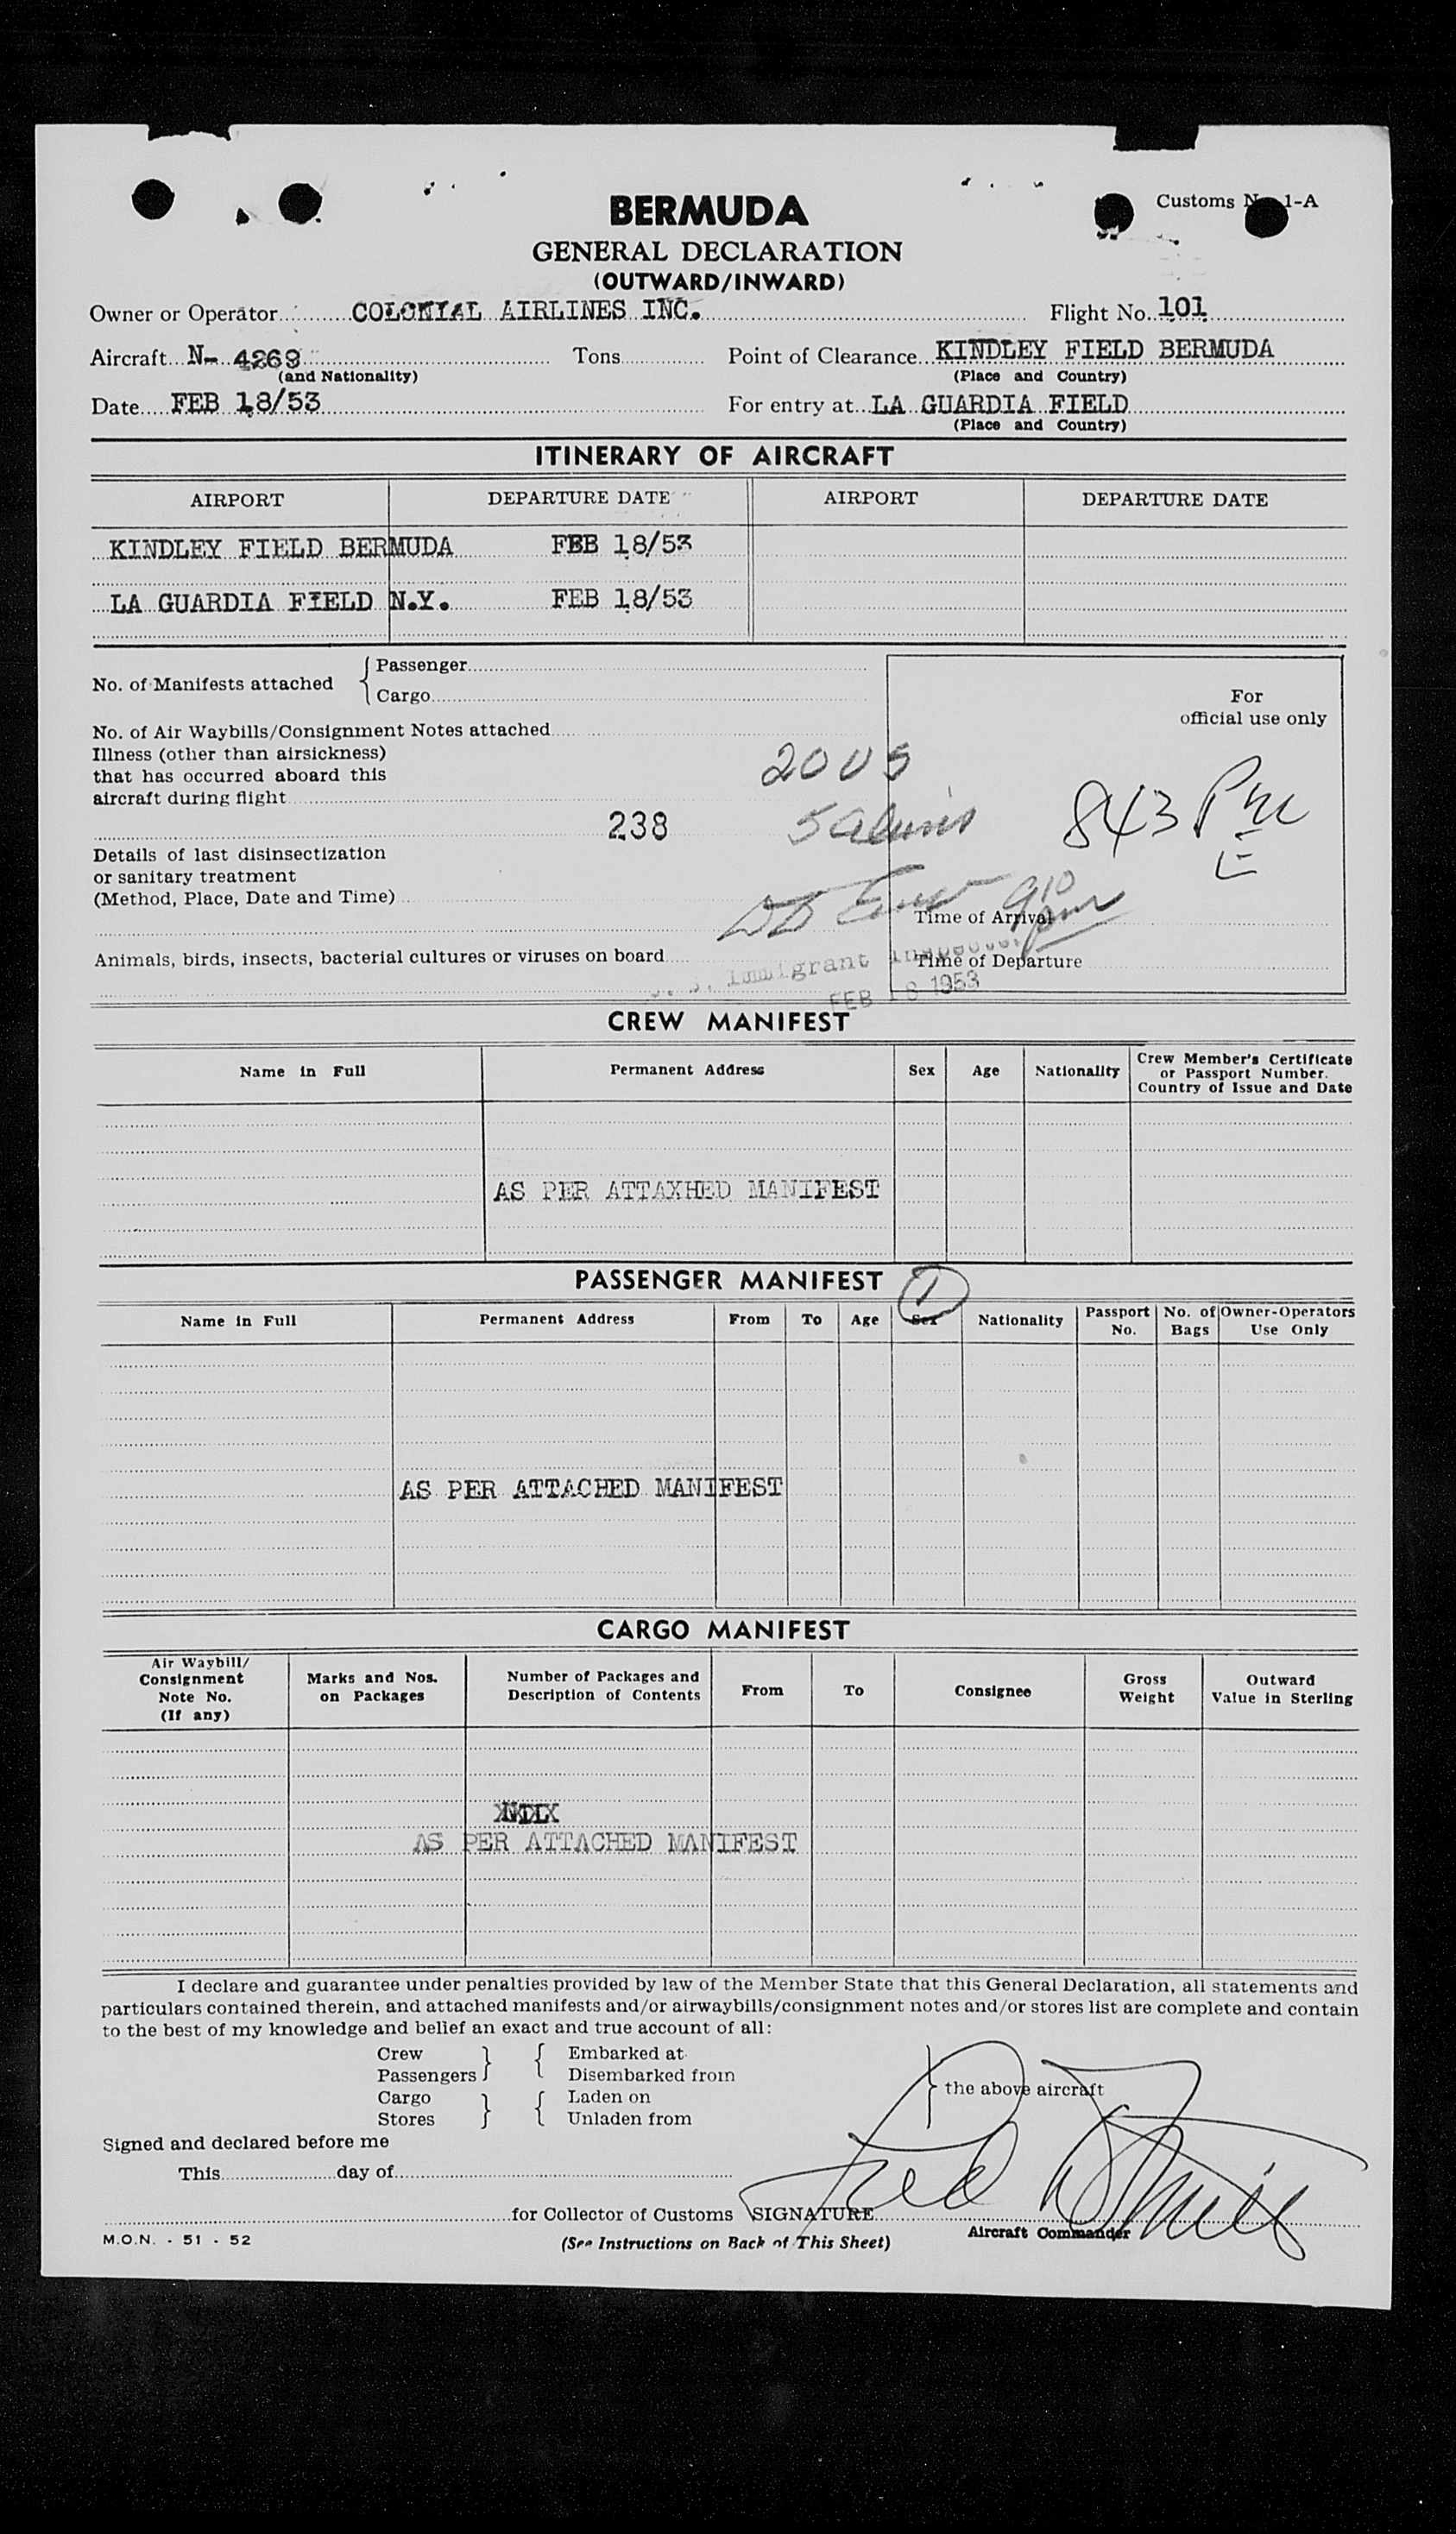 Customs No. 1-A
BERMUDA
GENERAL DECLARATION
(OUTWARD/INWARD)
Owner or Operator COLONIAL AIRLINES INC. Flight No. 101
Aircraft N- 4269 Tons Point of Clearance KINDLEY FIELD BERMUDA
(and Nationality) (Place and Country)
Date FEB 18/53 For entry at LA GUARDIA FIELD
(Place and Country)
ITINERARY OF AIRCRAFT
AIRPORT DEPARTURE DATE AIRPORT DEPARTURE DATE
KINDLEY FIELD BERMUDA FEB 18/53
LA GUARDIA FIELD N.Y. FEB 18/53
No. of Manifests attached { Passenger
Cargo
For
official use only
No. of Air Waybills/Consignment Notes attached
Illness (other than airsickness)
that has occurred aboard this
aircraft during flight
2 0 U S
5 aliens
843 PM
E
238
Details of last disinsectization
or sanitary treatment
(Method, Place, Date and Time)
910 pm
Time of Arrival
Animals, birds, insects, bacterial cultures or viruses on board
Time of Departure
U. S. Immigrant Inspector
FEB 18 1953
CREW MANIFEST
Name in Full Permanent Address Sex Age Nationality Crew Member's Certificate
or Passport Number.
Country of Issue and Date
AS PER ATTAXHED MANIFEST
PASSENGER MANIFEST 1
Name in Full Permanent Address From To Age Sex Nationality Passport No. No. of Bags Owner-Operators Use Only
AS PER ATTACHED MANIFEST
CARGO MANIFEST
Air Waybill/
Consignment
Note No.
(If any)
Marks and Nos.
on Packages
Number of Packages and
Description of Contents
From To Consignee
Gross
Weight
Outward
Value in Sterling
AS PER ATTACHED MANIFEST
I declare and guarantee under penalties provided by law of the Member State that this General Declaration, all statements and
particulars contained therein, and attached manifests and/or airwaybills/consignment notes and/or stores list are complete and contain
to the best of my knowledge and belief an exact and true account of all:
Crew } { Embarked at
Passengers Disembarked from
Cargo } { Laden on
Stores Unladen from
} the above aircraft
Signed and declared before me
This day of
for Collector of Customs SIGNATURE
Aircraft Commander
M.O.N. - 51 - 52 (See Instructions on Back of This Sheet)